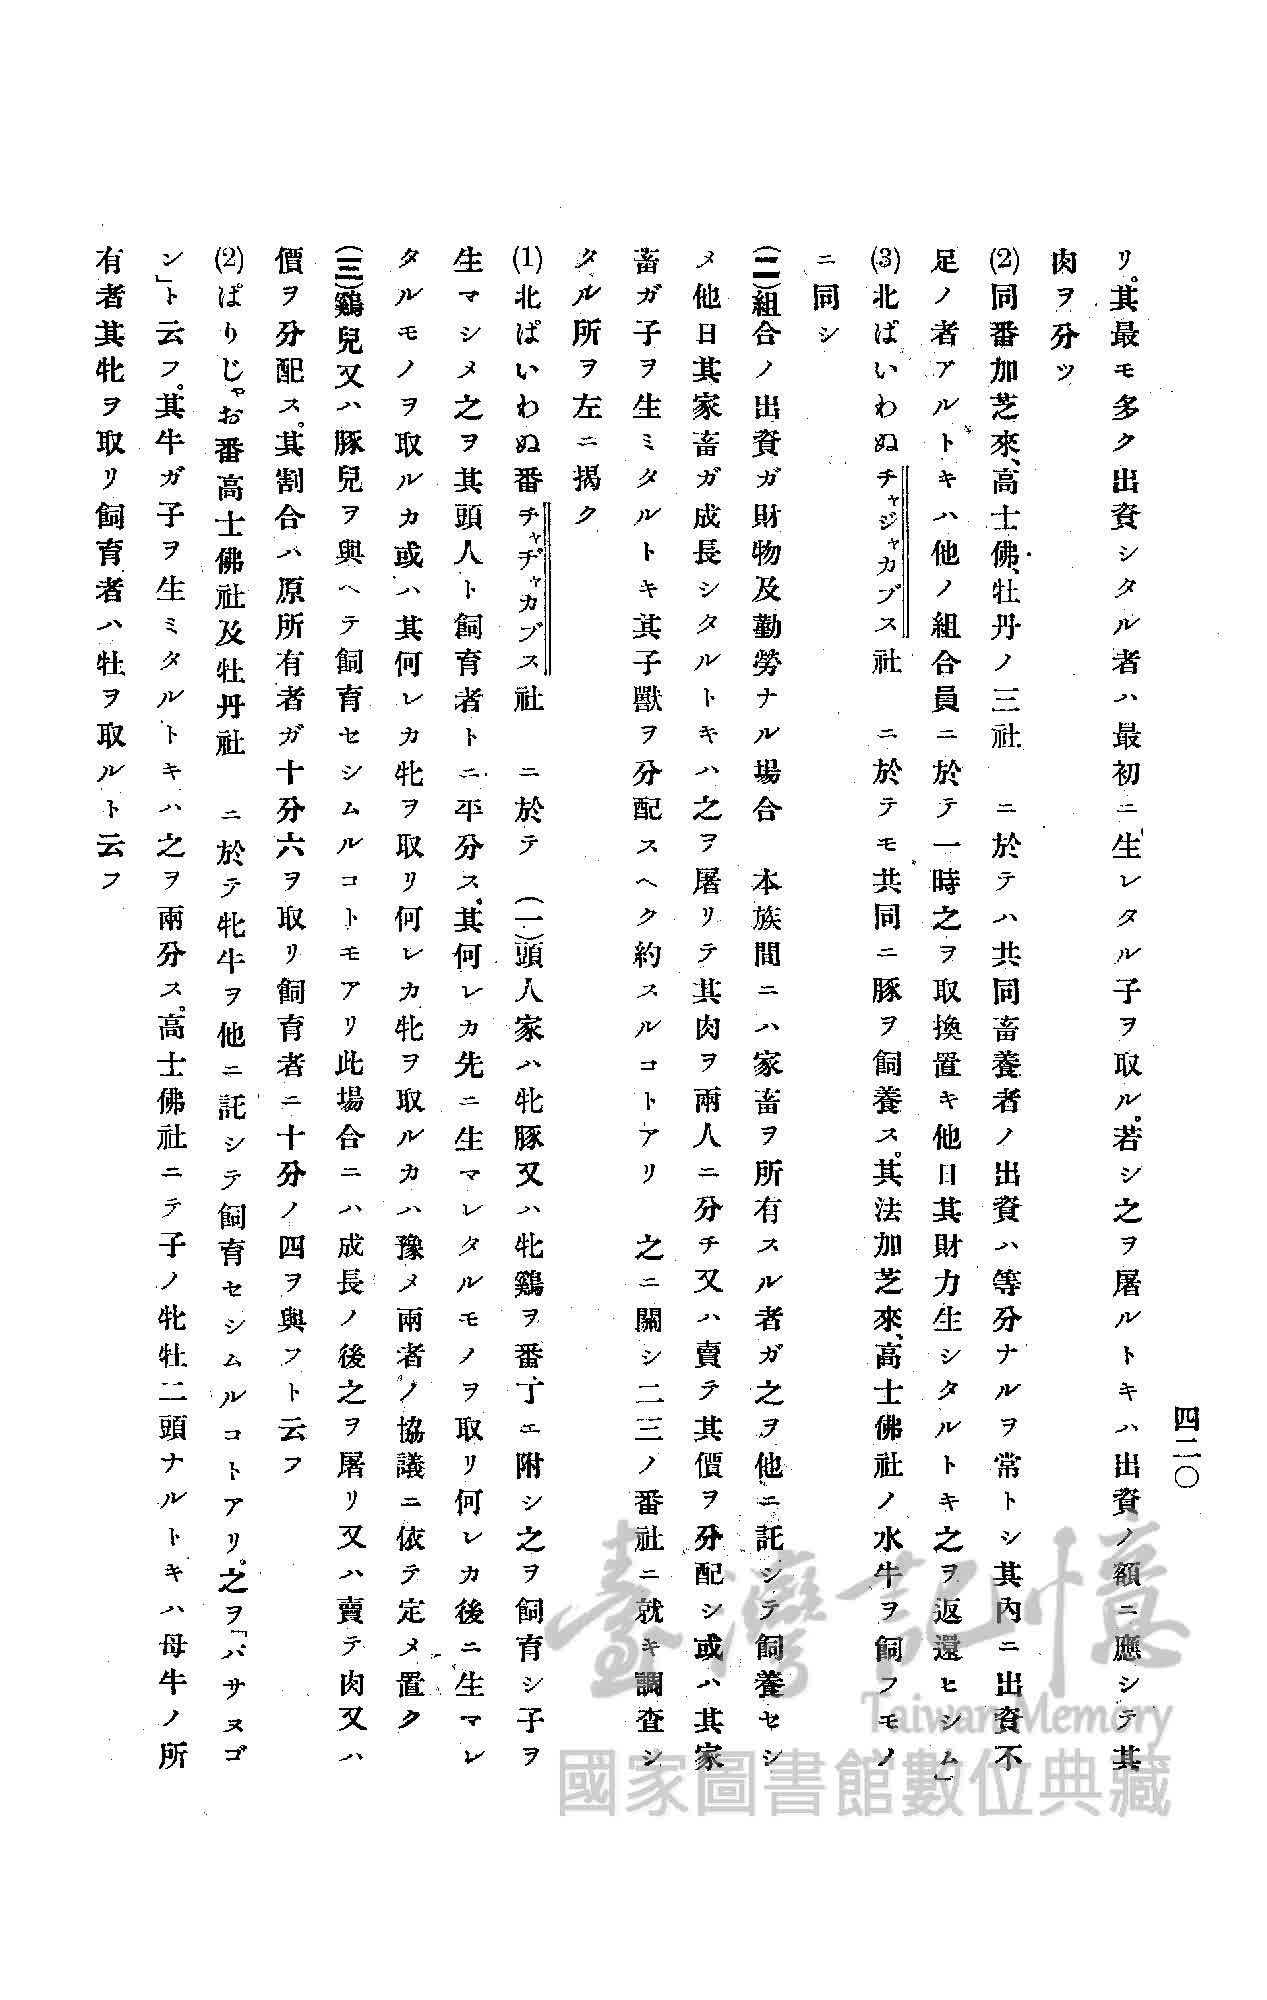 四二〇
リ。其最モ多ク出資シタル者ハ最初ニ生レタル子ヲ取ル。若シ之ヲ屠ルトキハ出資ノ額ニ應シテ其
肉ヲ分ツ
(2)同番加芝來、高士佛、牡丹ノ三社 ニ於テハ共同畜養者ノ出資ハ等分ナルヲ常トシ其內ニ出資不
足ノ者アルトキハ他ノ組合員ニ於テ一時之ヲ取換置キ他日其財力生シタルトキ之ヲ返還セシム」
(3)北ぱいわぬチャジャカブス社 ニ於テモ共同ニ豚ヲ飼養ス。其法加芝來、高士佛社ノ水牛ヲ飼フモノ
ニ同シ
(二)組合ノ出資ガ財物及勤勞ナル場合 本族間ニハ家畜ヲ所有スル者ガ之ヲ他ニ託シテ飼養セシ
メ他日其家畜ガ成長シタルトキハ之ヲ屠リテ其肉ヲ兩人ニ分チ又ハ賣テ其價ヲ分配シ或ハ其家
畜ガ子ヲ生ミタルトキ其子獸ヲ分配スヘク約スルコトアリ 之ニ關シ二三ノ番社ニ就キ調査シ
タル所ヲ左ニ揭ク
(1)北ぱいわぬ番チャヂャカブス社 ニ於テ (一)頭人家ハ牝豚又ハ牝鷄ヲ番丁ニ附シ之ヲ飼育シ子ヲ
生マシメ之ヲ其頭人ト飼育者トニ平分ス。其何レカ先ニ生マレタルモノヲ取リ何レカ後ニ生マレ
タルモノヲ取ルカ或ハ其何レカ牝ヲ取リ何レカ牝ヲ取ルカハ豫メ兩者ノ協議ニ依テ定メ置ク
(三)鷄兒又ハ豚兒ヲ與ヘテ飼育セシムルコトモアリ此場合ニハ成長ノ後之ヲ屠リ又ハ賣テ肉又ハ
價ヲ分配ス。其割合ハ原所有者ガ十分六ヲ取リ飼育者ニ十分ノ四ヲ與フト云フ
(2)ぱりじゃお番高士佛社及牡丹社 ニ於テ牝牛ヲ他ニ託シテ飼育セシムルコトアリ。之ヲ「パサヌゴ
シ」ト云フ。其牛ガ子ヲ生ミタルトキハ之ヲ兩分ス。高士佛社ニテ子ノ牝牡二頭ナルトキハ母牛ノ所
有者其牝ヲ取リ飼育者ハ牡ヲ取ルト云フ
臺灣記憶
Taiwan Memory
國家圖書館數位典藏